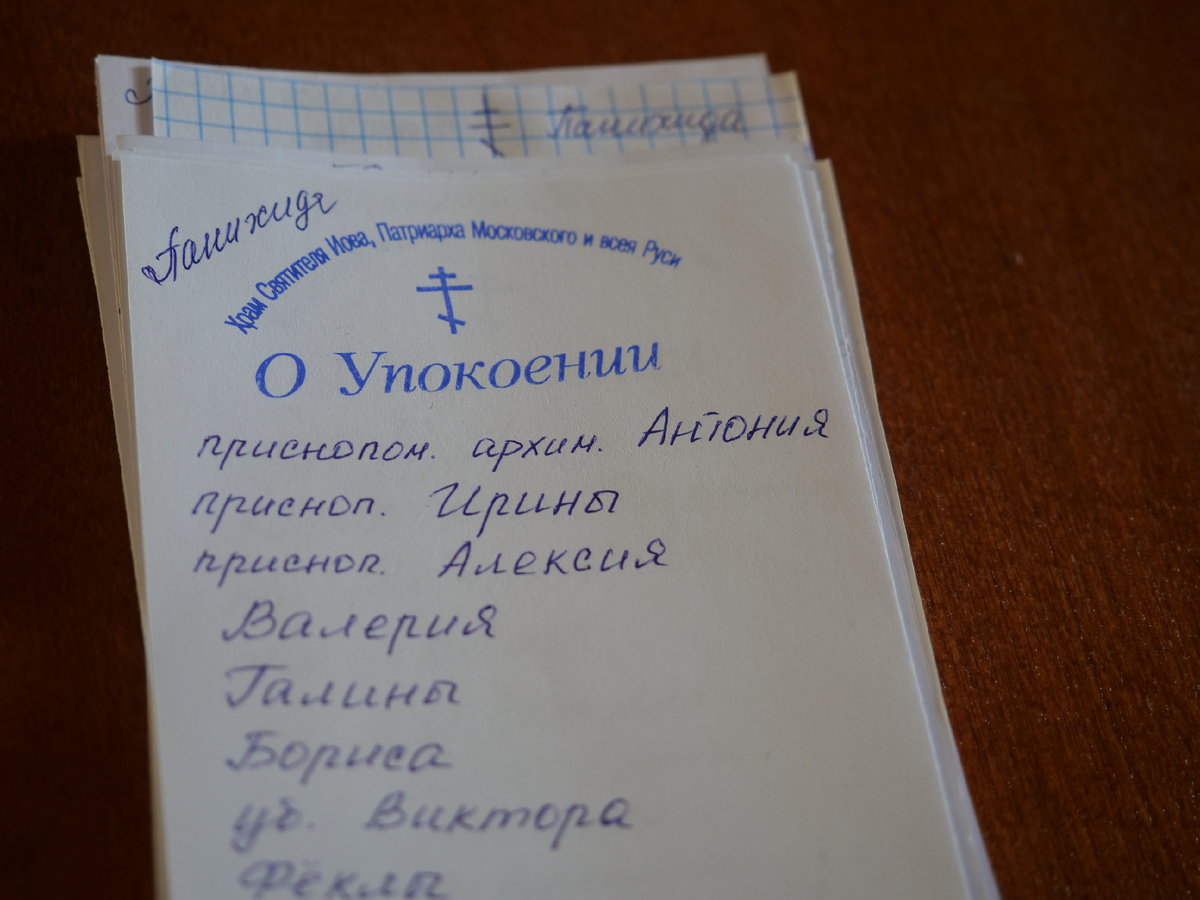 Панихида
Панихида
Храм Святителя Иова, Патриарха Московского и всея Руси
О Упокоении
приснопом. архим. Антония
присноп. Ирины
присноп. Алексия
Валерия
Галины
Бориса
уб. Виктора
Фёклы